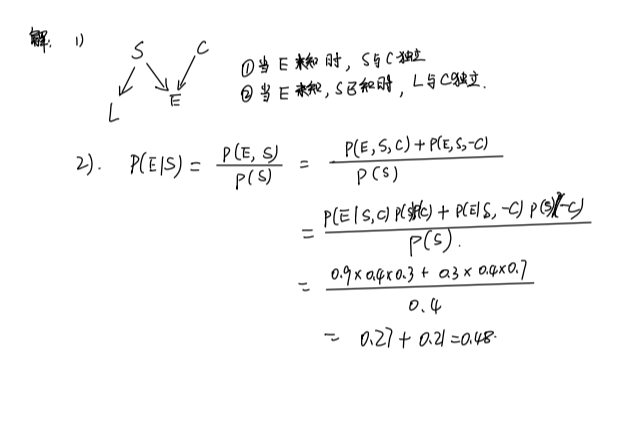 解: 1)
S C
L E
①当 E 未知时, S与C独立
②当 E 未知, S已知时, L与C独立.
2). P(E|S) = P(E, S) / P(S) = P(E, S, C) + P(E, S, -C) / P(S)
= P(E|S, C) P(S)P(C) + P(E|S, -C) P(S)P(-C) / P(S).
= 0.9×0.4×0.3 + 0.3×0.4×0.7 / 0.4
= 0.27 + 0.21 = 0.48.